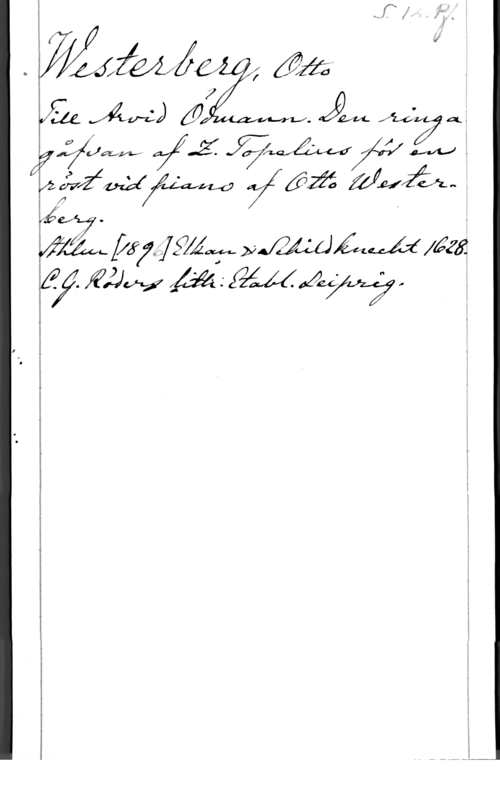 Westerberg, Otto
Till Arvid Ödmann. Den ringa
gåfvan af Z. Topelius för en
röst vid piano af Otto Wester-
berg.
Sthlm [189 ] Elkan & Schildknecht 1628.
C. G. Röders lith: Etabl. Leipzig.